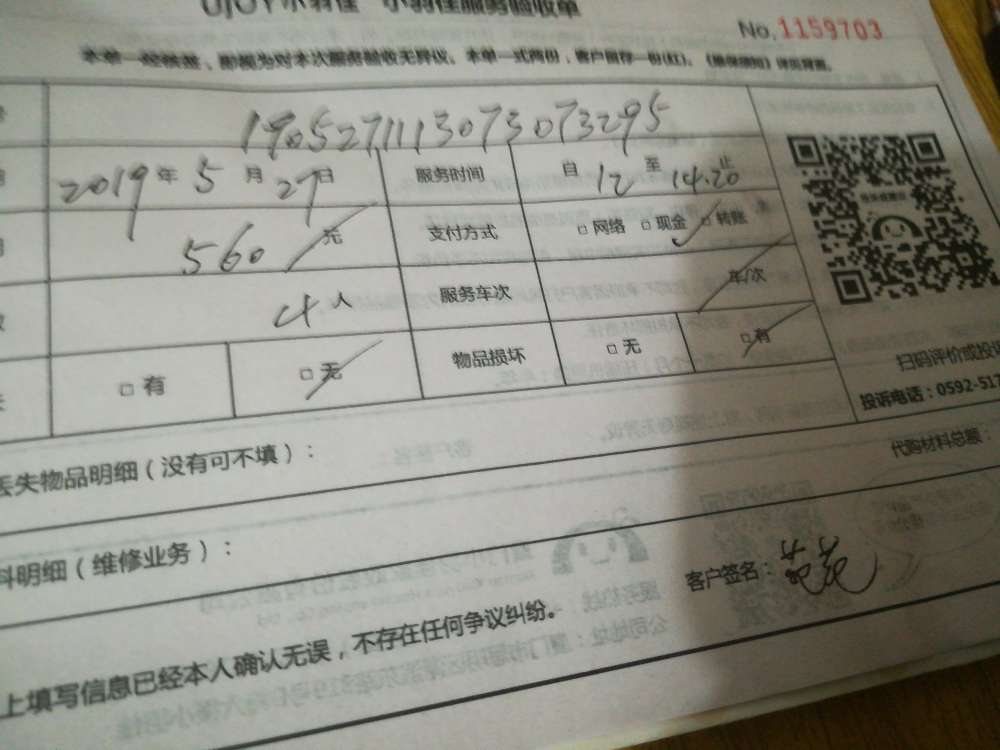 UJOY小羽佳 小羽佳服务验收单
No.1159703
本单一经核签,即视为对本次服务验收无异议。本单一式两份,客户留存一份(红)。
190527111307307329​5
2019年5月27日 服务时间 自12至14.20止
560元 支付方式 □网络 □现金 □转账
4人 服务车次 车/次
□有 □无 物品损坏 □无 □有
扫码评价或投诉
投诉电话:0592-517
丢失物品明细(没有可不填):
代购材料总额:
料明细(维修业务):
客户签名:
上填写信息已经本人确认无误,不存在任何争议纠纷。